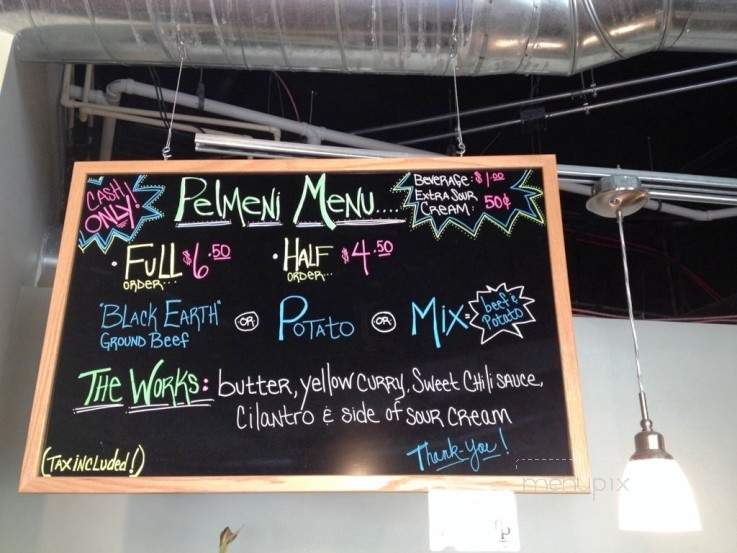 CASH
ONLY!
Pelmeni Menu....
Beverage: $1.00
Extra Sour
Cream: 50¢
• Full $6.50
order...
• Half $4.50
order...
"Black Earth"
Ground Beef
OR
Potato
OR
Mix=
beef &
Potato
The Works: butter, yellow curry, Sweet Chili sauce,
Cilantro & side of sour cream
(Tax included!)
Thank-you!
menupix